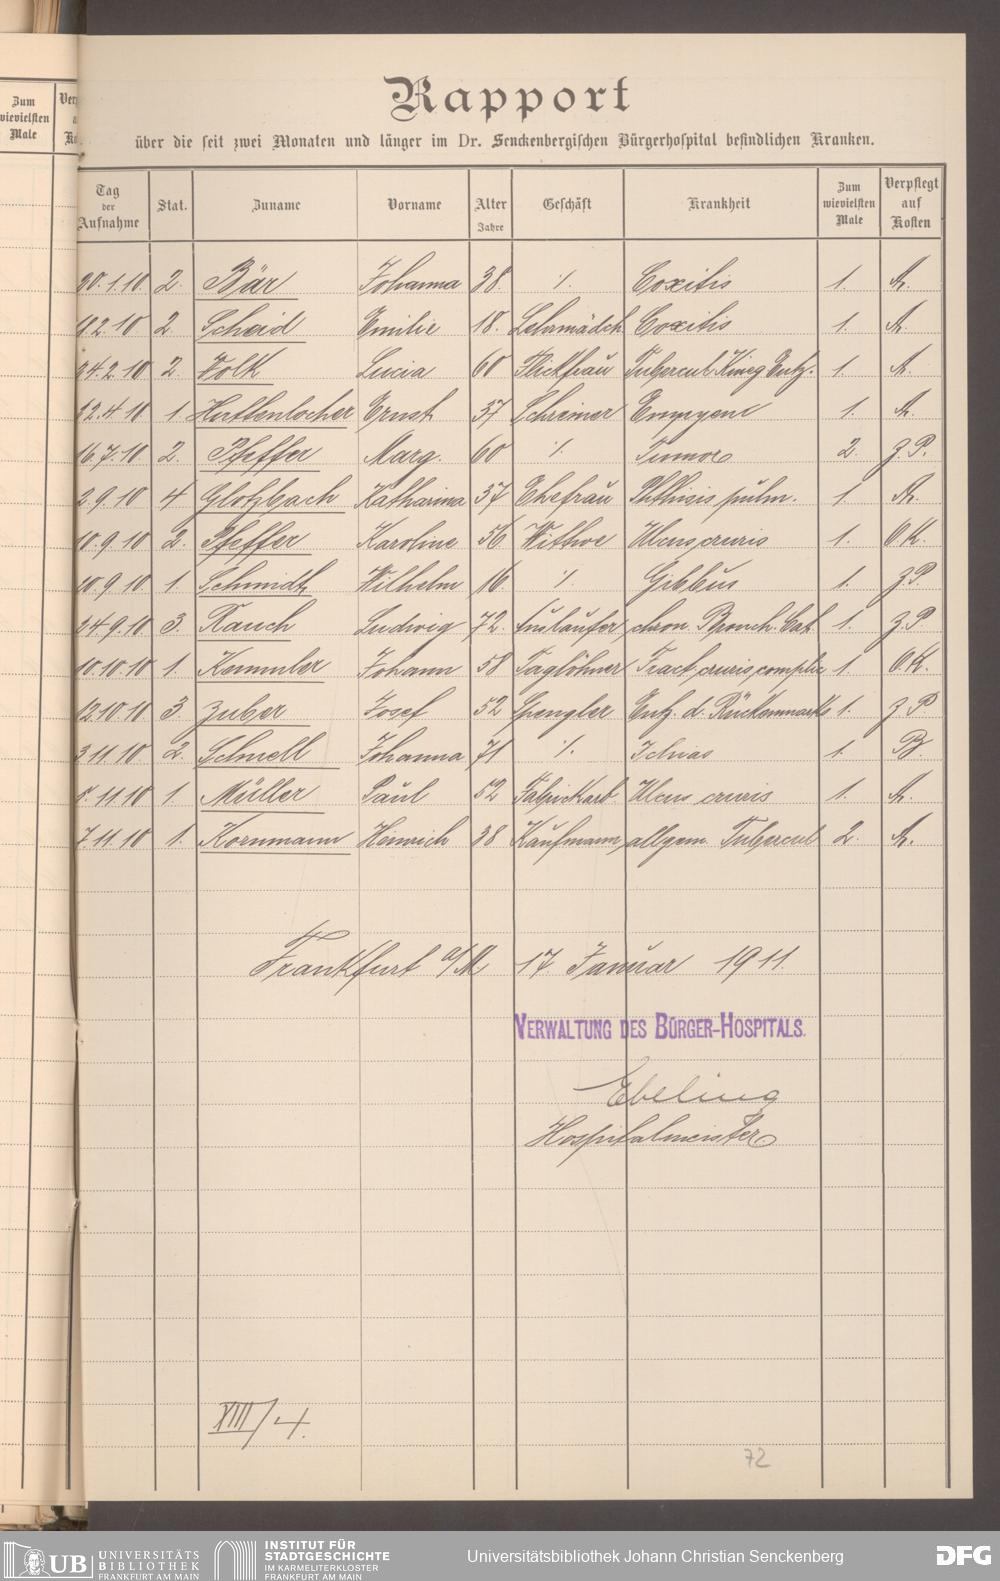 Zum
wievielsten
Male
Rapport
über die seit zwei Monaten und länger im Dr. Senckenbergischen Bürgerhospital befindlichen Kranken.
Tag der Aufnahme Stat. Zuname Vorname Alter Jahre Geschäft Krankheit Zum wievielsten Male Verpflegt auf Kosten
20.1.10. 2. Bär Johanna 38 ·/. Coxitis 1. A.
9.2.10 2. Scheid Emilie 18. Lehrmädch. Coxitis 1. A.
24.2.10 2. Lucia 60 Flickfrau Tubercul. 1. A.
12.4.10. 1. Huttenlocher Ernst 37 Schreiner Empyem 1. A.
16.7.10. 2. Pfeffer Marg. 60 ·/. Tumor 2. z. P.
2.9.10 4 Glotzbach Katharina 37 Ehefrau Phthisis pulm. 1 A.
10.9.10 2. Pfeffer Karoline 56 Wittwe Ulcus cruris 1. O.K.
10.9.10. 1. Schmidt Wilhelm 16 ·/. Gibbus 1. z. P.
24.9.10 3. Rauch Ludwig 72. Ausläufer chron. Bronch. Cat. 1. z. P.
10.10.10 1. Kemmler Johann 58 Taglöhner Fract. cruris complic 1. O.K.
12.10.10 3. Zuber Josef 52 Spengler Entz. d. Rückenmarks 1. z. P.
3.11.10. 2. Schnell Johanna 71 ·/. Ischias 1.
5.11.10 1. Müller Paul 52 Fabrickarb. Ulcus cruris 1. A.
7.11.10 1. Kornmann Heinrich 38 Kaufmann allgem. Tubercul 2. A.
Frankfurt a/M 17. Januar 1911.
VERWALTUNG DES BÜRGER-HOSPITALS.
Ebeling
Hospitalmeister
XIII/4.
72
UB UNIVERSITÄTS BIBLIOTHEK FRANKFURT AM MAIN
INSTITUT FÜR STADTGESCHICHTE IM KARMELITERKLOSTER FRANKFURT AM MAIN
Universitätsbibliothek Johann Christian Senckenberg
DFG